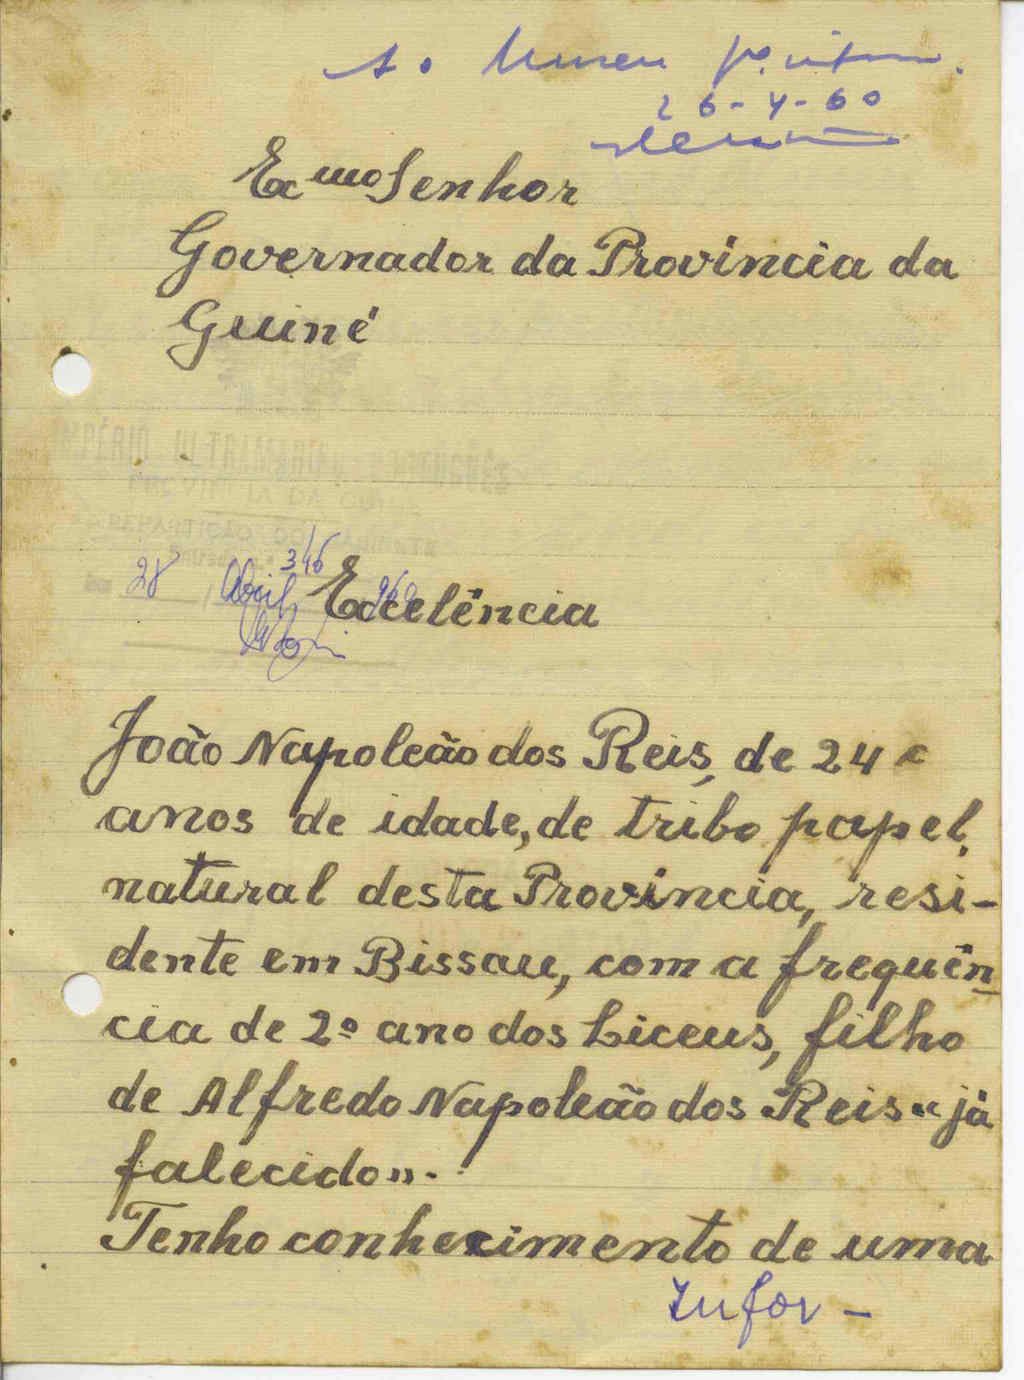 Ao Museu
26-4-60
Exmo Senhor
Governador da Provincia da
Guiné
IMPÉRIO ULTRAMARINO PORTUGUÊS
PROVINCIA DA GUINÉ
REPARTIÇÃO DO GABINETE
346
28 Abril 960
Excelência
João Napoleão dos Reis, de 24
anos de idade, de tribo papel,
natural desta Provincia, resi-
dente em Bissau, com a frequên
cia de 2º ano dos Liceus, filho
de Alfredo Napoleão dos Reis «já
falecido».
Tenho conhecimento de uma
Infor-